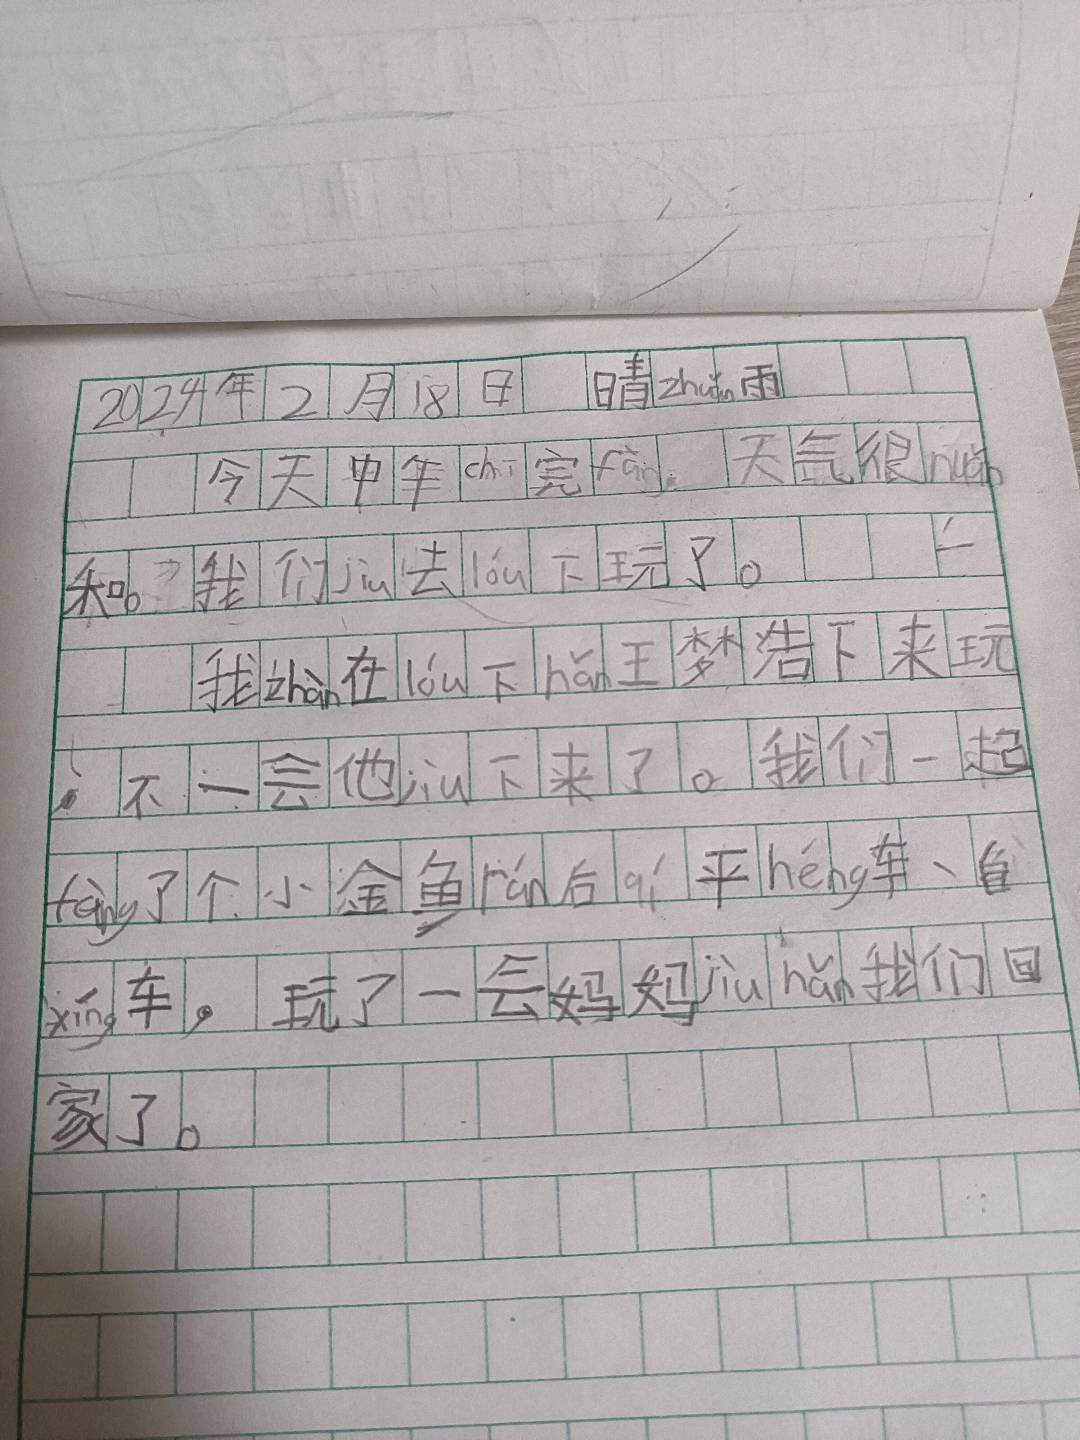 2024年2月18日 晴zhuǎn雨
今天中午chī完fàn。天气很nuǎn
和。我们jiù去lóu下玩了。
我zhàn在lóu下hǎn王梦浩下来玩
!不一会他jiù下来了。我们一起
fàng了个小金鱼rán后qí平héng车、自
xíng车,玩了一会妈妈jiù hǎn我们回
家了。